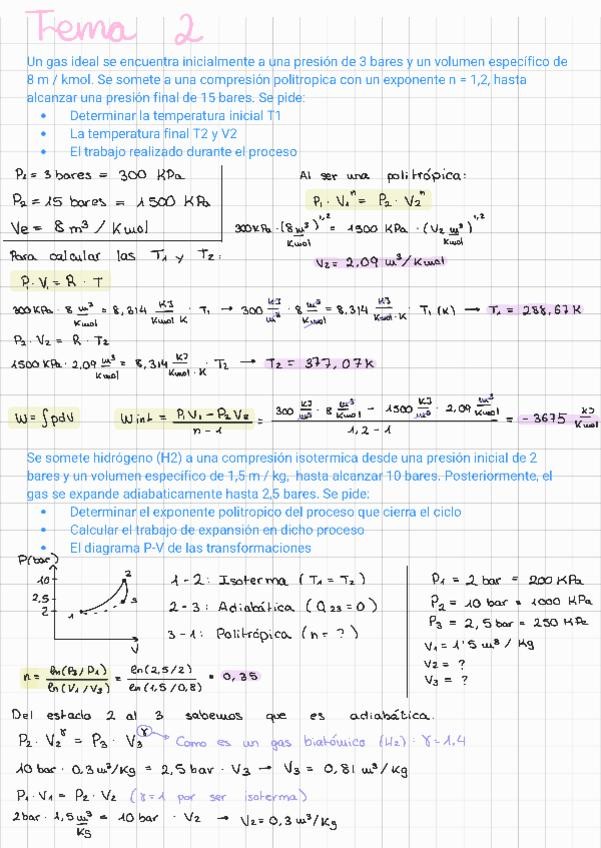 Tema 2
Un gas ideal se encuentra inicialmente a una presión de 3 bares y un volumen específico de
8 m / kmol. Se somete a una compresión politropica con un exponente n = 1,2, hasta
alcanzar una presión final de 15 bares. Se pide:
• Determinar la temperatura inicial T1
• La temperatura final T2 y V2
• El trabajo realizado durante el proceso
P₁ = 3 bares = 300 KPa
P₂ = 15 bares = 1500 KPa
Ve = 8 m³ / Kmol
Al ser una politrópica:
P₁ · V₁ⁿ = P₂ · V₂ⁿ
300 KPa · (8 m³/Kmol)^1,2 = 1500 KPa · (V₂ m³/Kmol)^1,2
V₂ = 2,09 m³/Kmol
Para calcular las T₁ y T₂:
P₁ · V₁ = R · T
300 KPa · 8 m³/Kmol = 8,314 KJ/Kmol·K · T₁ → 300 KJ/m³ · 8 m³/Kmol = 8,314 KJ/Kmol·K · T₁ (K) → T₁ = 288,67 K
P₂ · V₂ = R · T₂
1500 KPa · 2,09 m³/Kmol = 8,314 KJ/Kmol·K · T₂ → T₂ = 377,07 K
W = ∫pdV Wint = P₁V₁ - P₂V₂ / n - 1 = 300 KJ/m³ · 8 m³/Kmol - 1500 KJ/m³ · 2,09 m³/Kmol / 1,2 - 1 = - 3675 KJ/Kmol
Se somete hidrógeno (H2) a una compresión isotermica desde una presión inicial de 2
bares y un volumen específico de 1,5 m / kg, hasta alcanzar 10 bares. Posteriormente, el
gas se expande adiabaticamente hasta 2,5 bares. Se pide:
• Determinar el exponente politropico del proceso que cierra el ciclo
• Calcular el trabajo de expansión en dicho proceso
• El diagrama P-V de las transformaciones
P(bar)
10
2,5
2
1
2
3
V
1 - 2: Isoterma (T₁ = T₂)
2 - 3: Adiabática (Q₂₃ = 0)
3 - 1: Politrópica (n = ?)
P₁ = 2 bar = 200 KPa
P₂ = 10 bar = 1000 KPa
P₃ = 2,5 bar = 250 KPa
V₁ = 1'5 m³ / Kg
V₂ = ?
V₃ = ?
n = ln(P₃/P₁) / ln(V₁/V₃) = ln(2,5/2) / ln(1,5/0,8) = 0,35
Del estado 2 al 3 sabemos que es adiabática.
P₂ · V₂^γ = P₃ · V₃^γ → Como es un gas biatómico (H₂) · γ = 1,4
10 bar · 0,3 m³/Kg = 2,5 bar · V₃ → V₃ = 0,81 m³/Kg
P₁ · V₁ = P₂ · V₂ (γ = 1 por ser isoterma)
2 bar · 1,5 m³/Kg = 10 bar · V₂ → V₂ = 0,3 m³/Kg